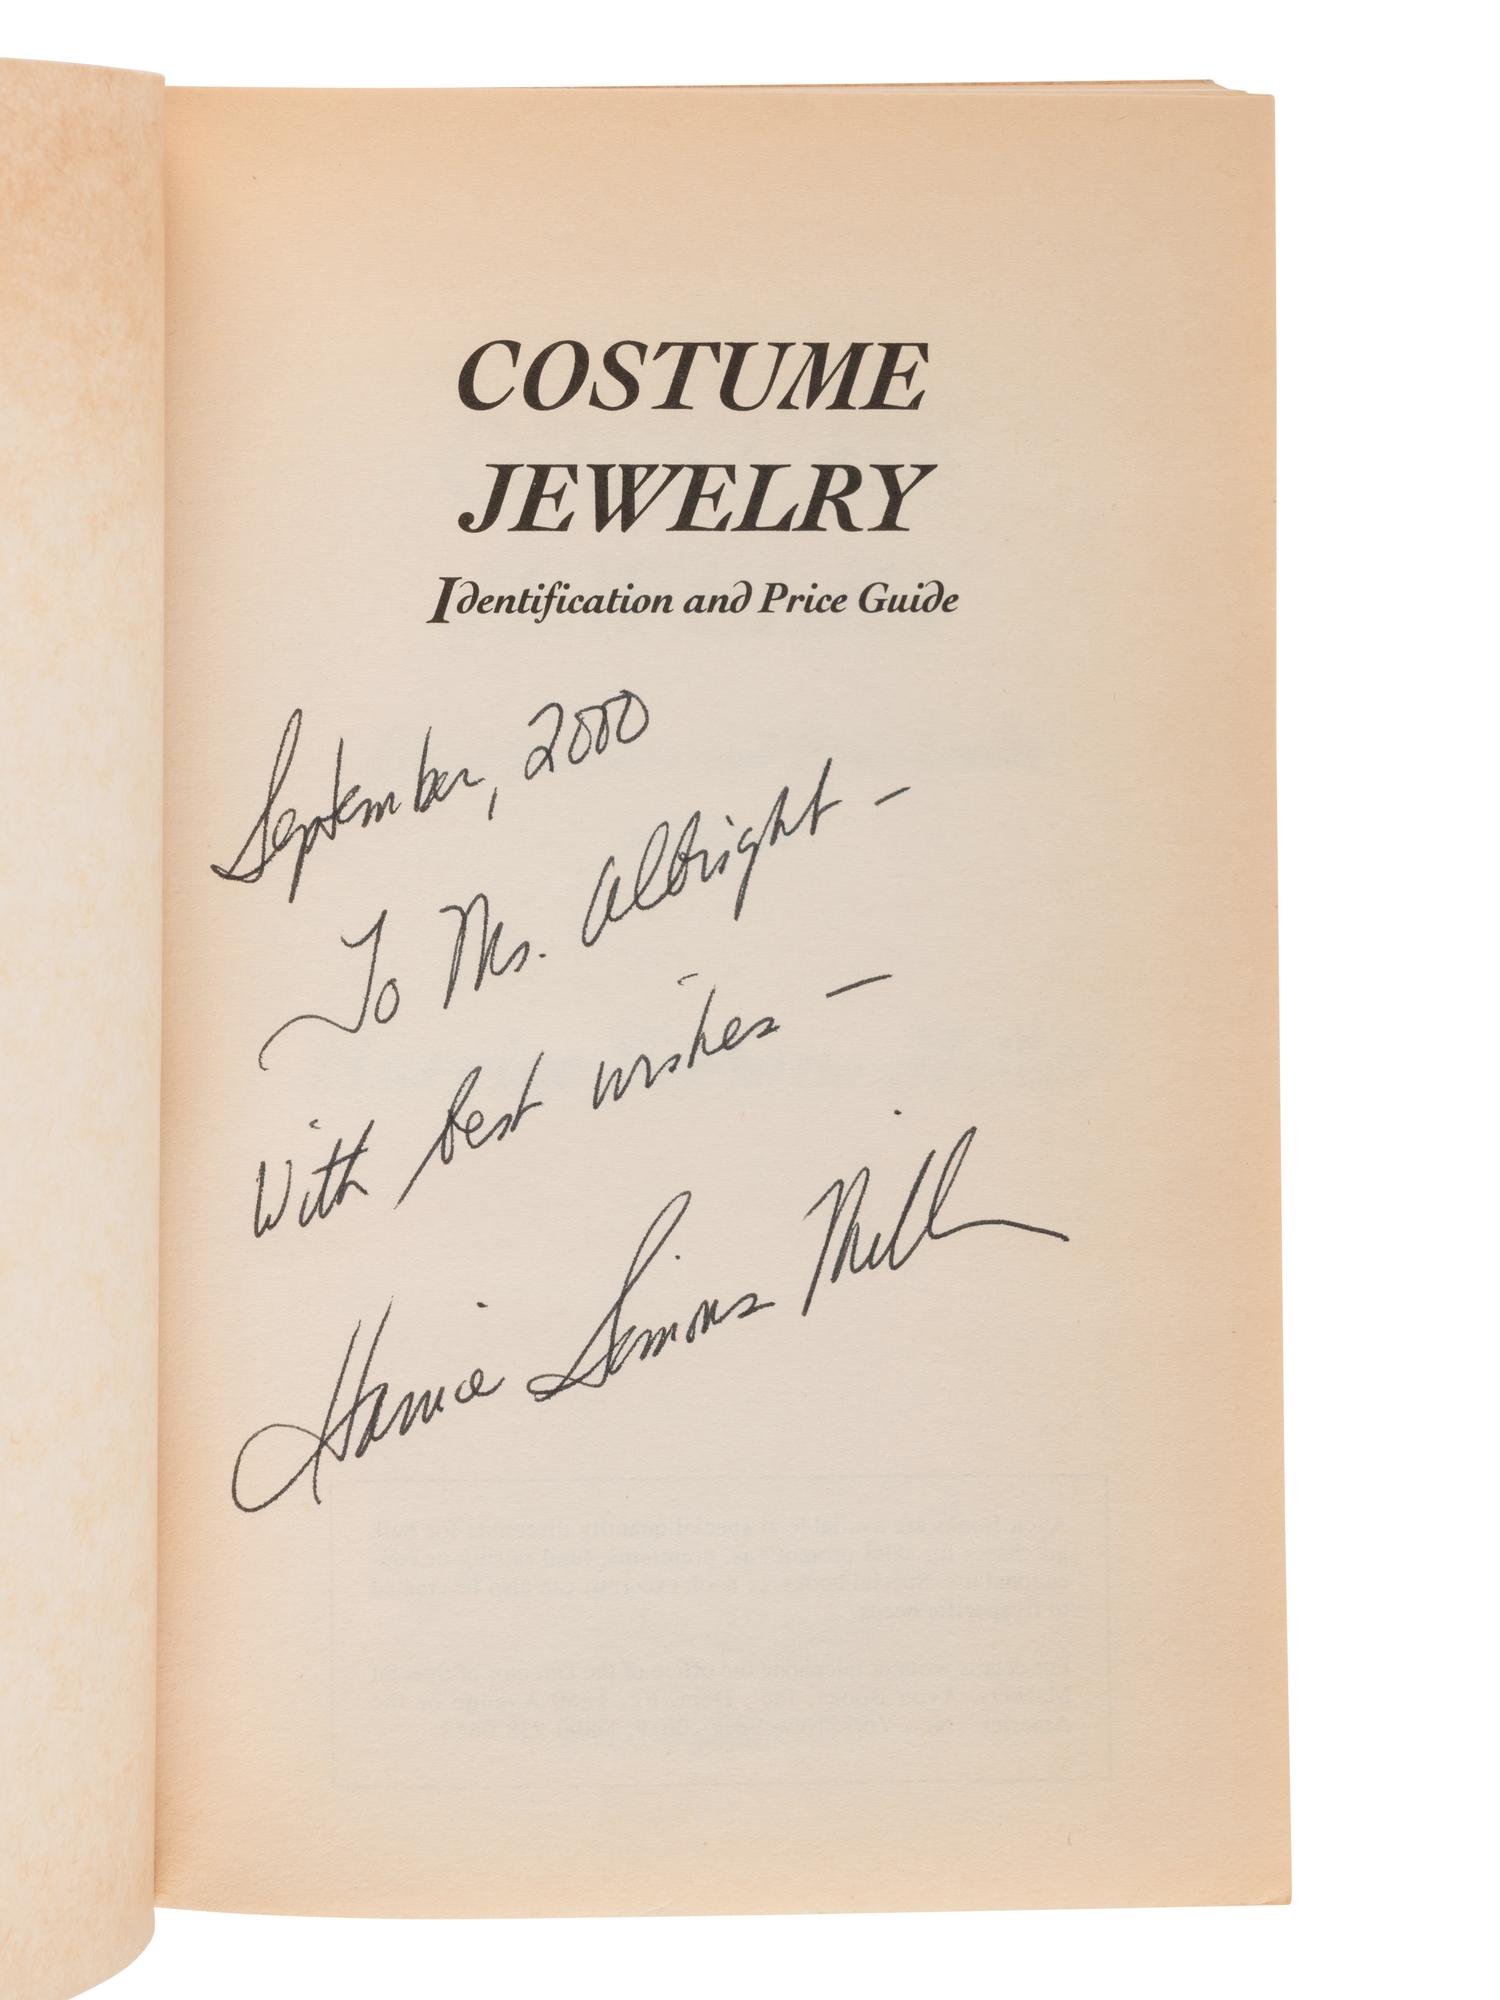 COSTUME
JEWELRY
Identification and Price Guide
September, 2000
To Ms. Albright –
With best wishes –
Harrice Simons Miller